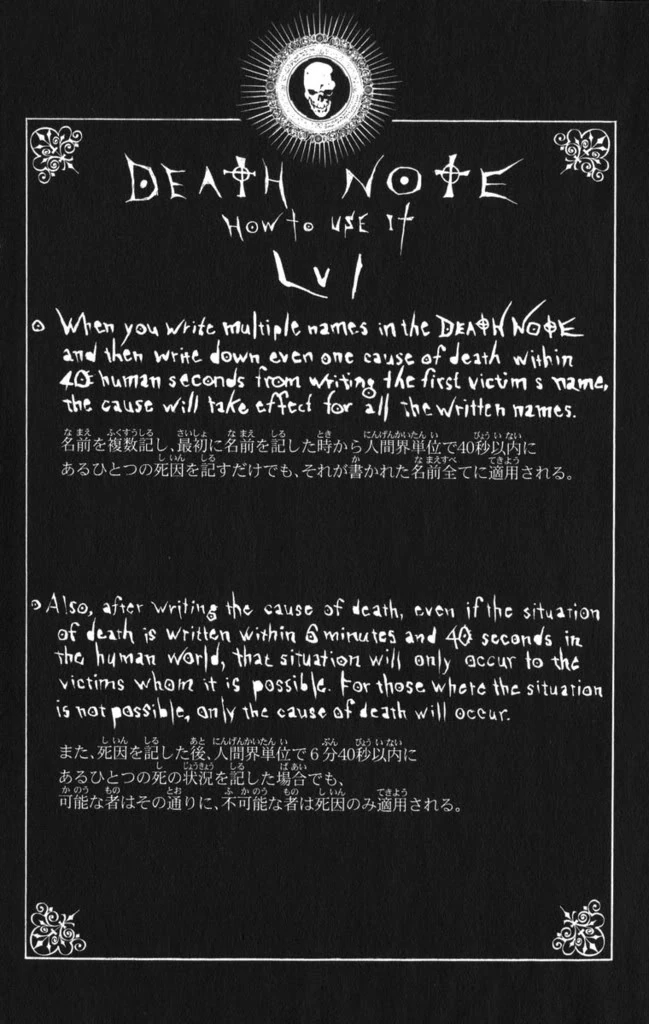 DEATH NOTE
How to USE It
LVI
When you write multiple names in the DEATH NOTE
and then write down even one cause of death within
40 human seconds from writing the first victim s name,
the cause will take effect for all the written names.
名前を複数記し、最初に名前を記した時から人間界単位で40秒以内に
あるひとつの死因を記すだけでも、それが書かれた名前全てに適用される。
Also, after writing the cause of death, even if the situation
of death is written within 6 minutes and 40 seconds in
the human world, that situation will only occur to the
victims whom it is possible. For those where the situation
is not possible, only the cause of death will occur.
また、死因を記した後、人間界単位で6分40秒以内に
あるひとつの死の状況を記した場合でも、
可能な者はその通りに、不可能な者は死因のみ適用される。